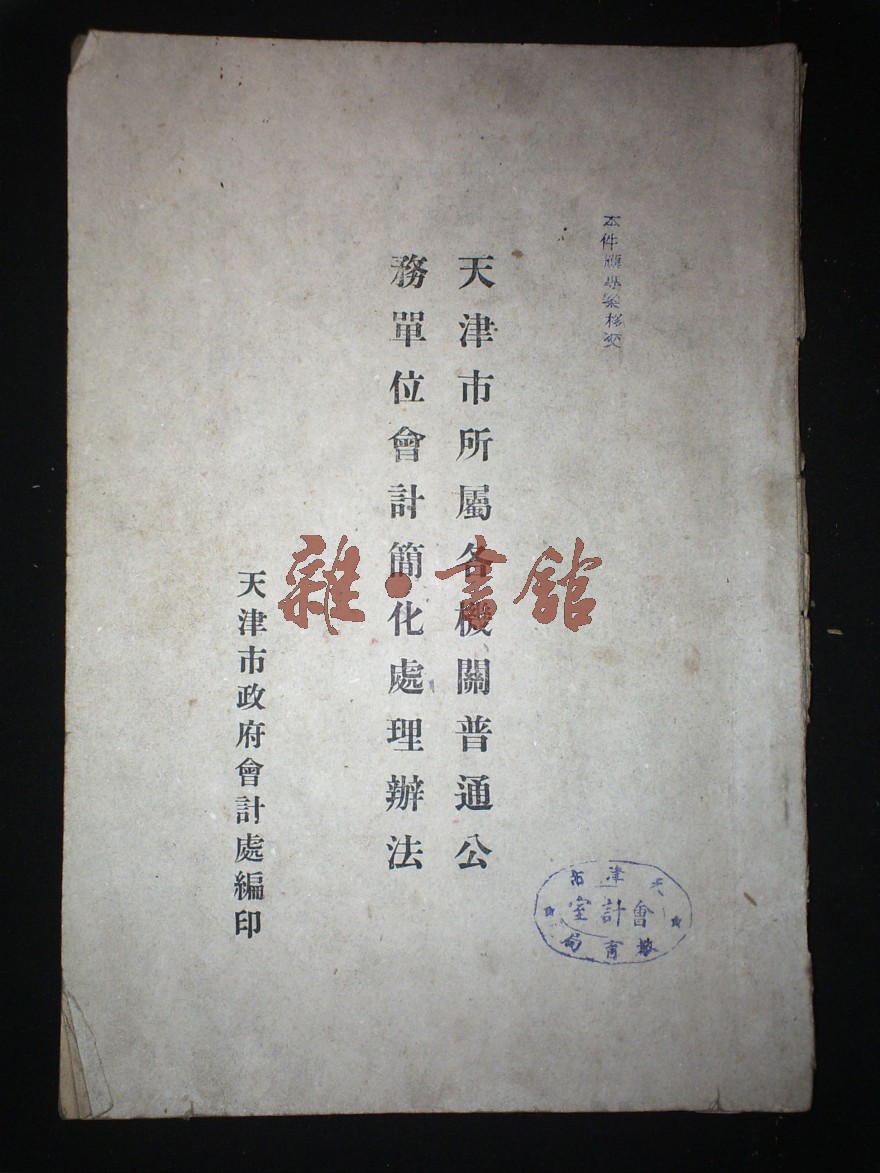 本件應專案移交
天津市所屬各機關普通公
務單位會計簡化處理辦法
天津市政府會計處編印
雜·書館
天津市
會計室
教育局